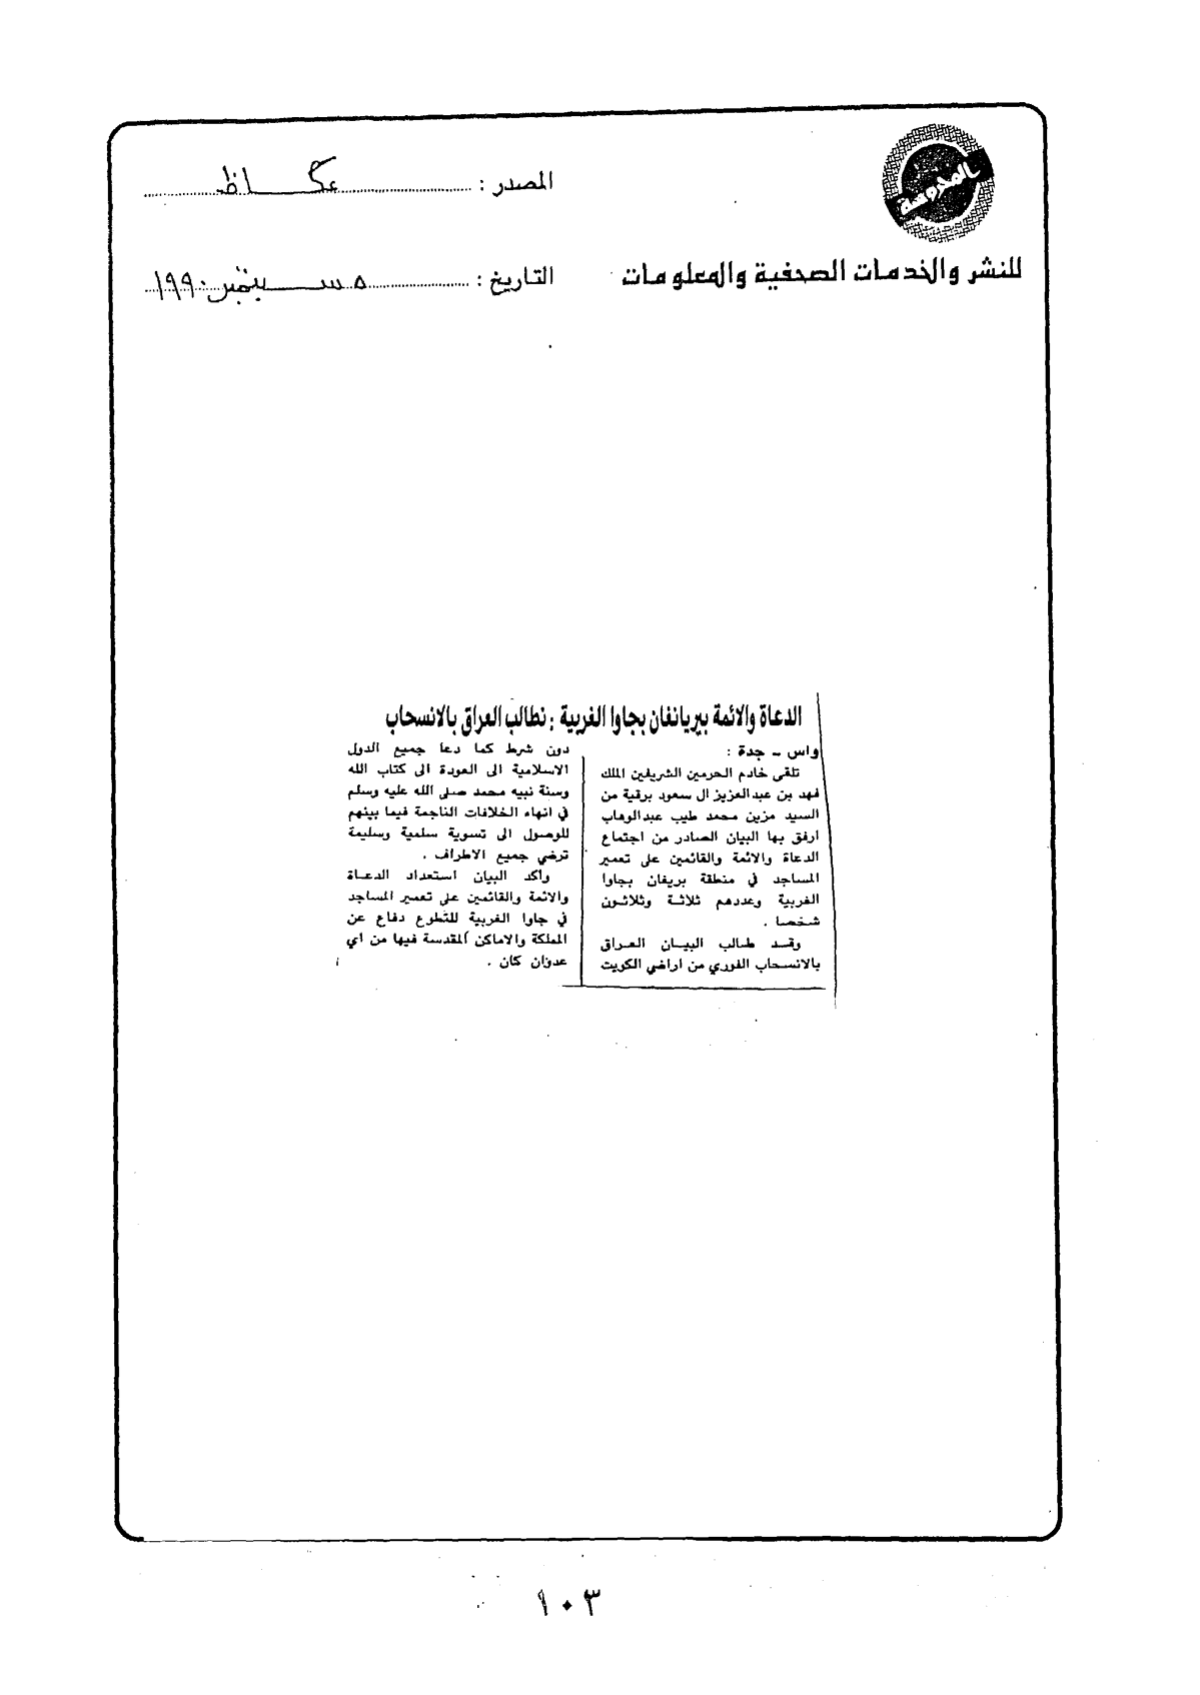 المحروسة
للنشر والخدمات الصحفية والمعلومات
المصدر : عكاظ
التاريخ : ٥ سبتمبر ١٩٩٠
الدعاة والائمة ببريانفان بجاوا الغربية : نطالب العراق بالانسحاب
واس - جدة :
تلقى خادم الحرمين الشريفين الملك
فهد بن عبدالعزيز ال سعود برقية من
السيد مزين محمد طيب عبدالوهاب
ارفق بها البيان الصادر من اجتماع
الدعاة والائمة والقائمين على تعمير
المساجد في منطقة بريفان بجاوا
الغربية وعددهم ثلاثة وثلاثون
شخصا .
وقد طالب البيان العراق
بالانسحاب الفوري من اراضي الكويت
دون شرط كما دعا جميع الدول
الاسلامية الى العودة الى كتاب الله
وسنة نبيه محمد صلى الله عليه وسلم
في انهاء الخلافات الناجمة فيما بينهم
للوصول الى تسوية سلمية وسليمة
ترضي جميع الاطراف .
وأكد البيان استعداد الدعاة
والائمة والقائمين على تعمير المساجد
في جاوا الغربية للتطوع دفاع عن
المملكة والاماكن المقدسة فيها من اي
عدوان كان .
١٠٣